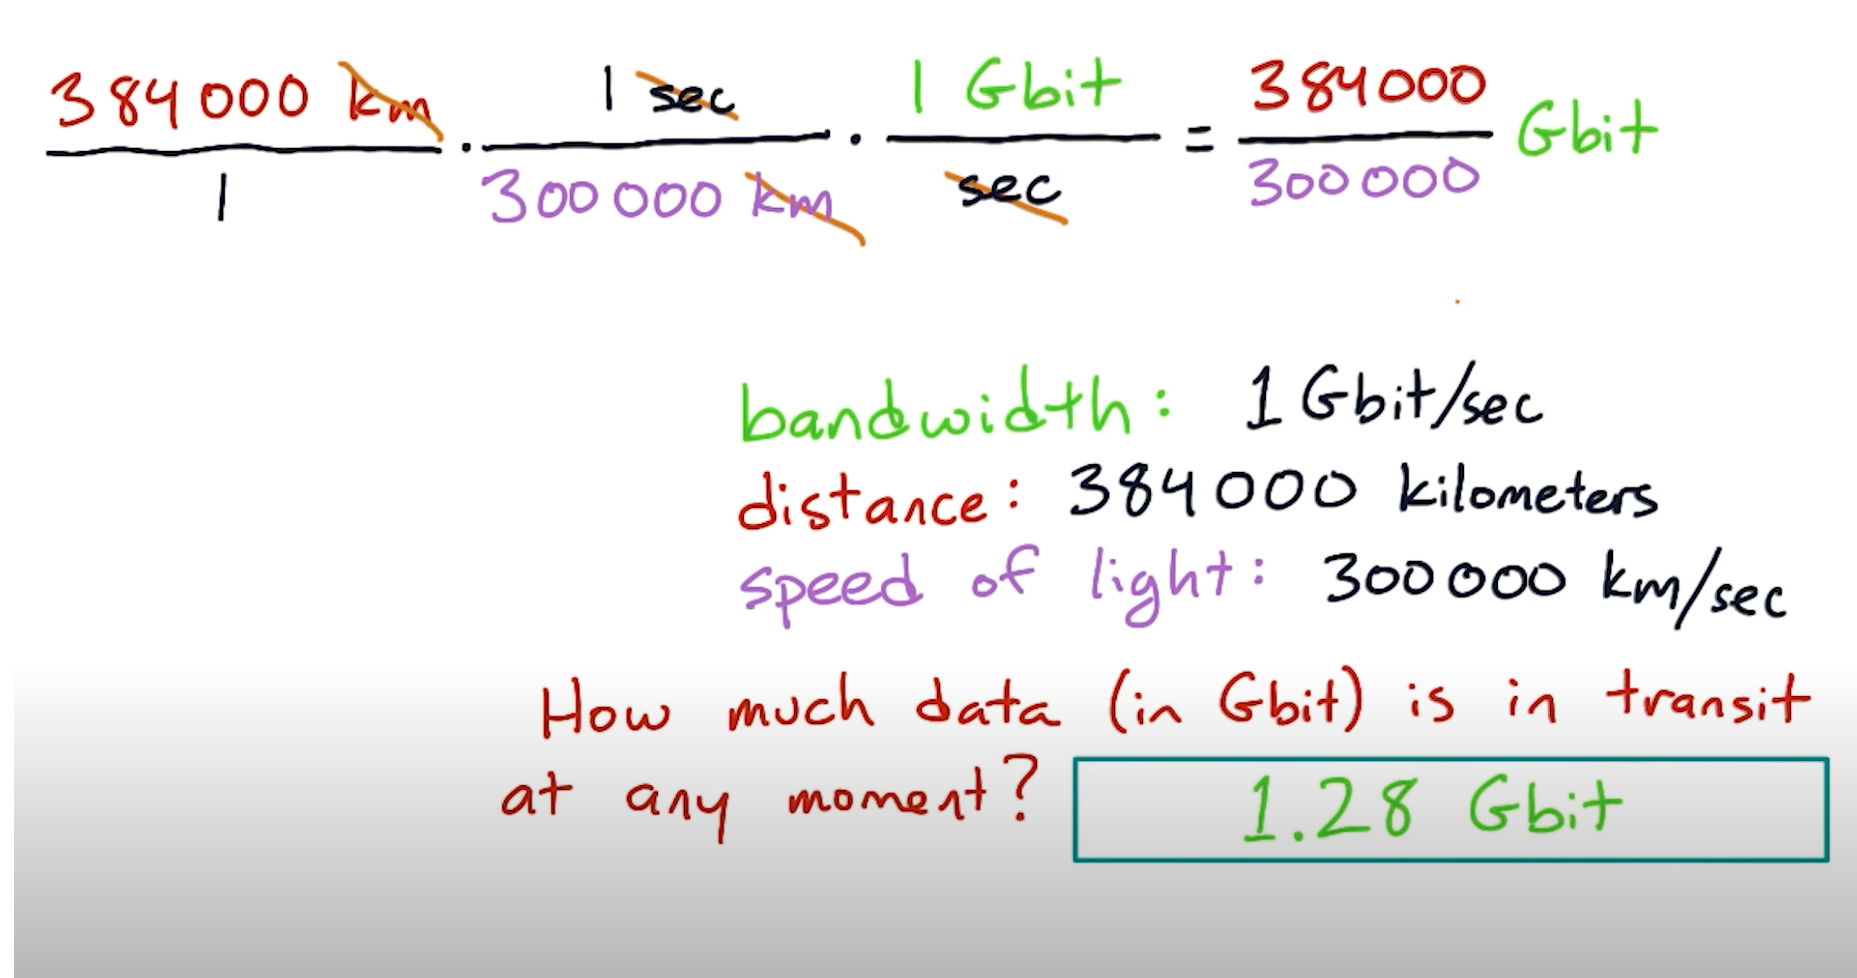 384 000 km / 1 · 1 sec / 300 000 km · 1 Gbit / sec = 384 000 / 300 000 Gbit
bandwidth: 1 Gbit/sec
distance: 384 000 kilometers
speed of light: 300 000 km/sec
How much data (in Gbit) is in transit
at any moment? 1.28 Gbit